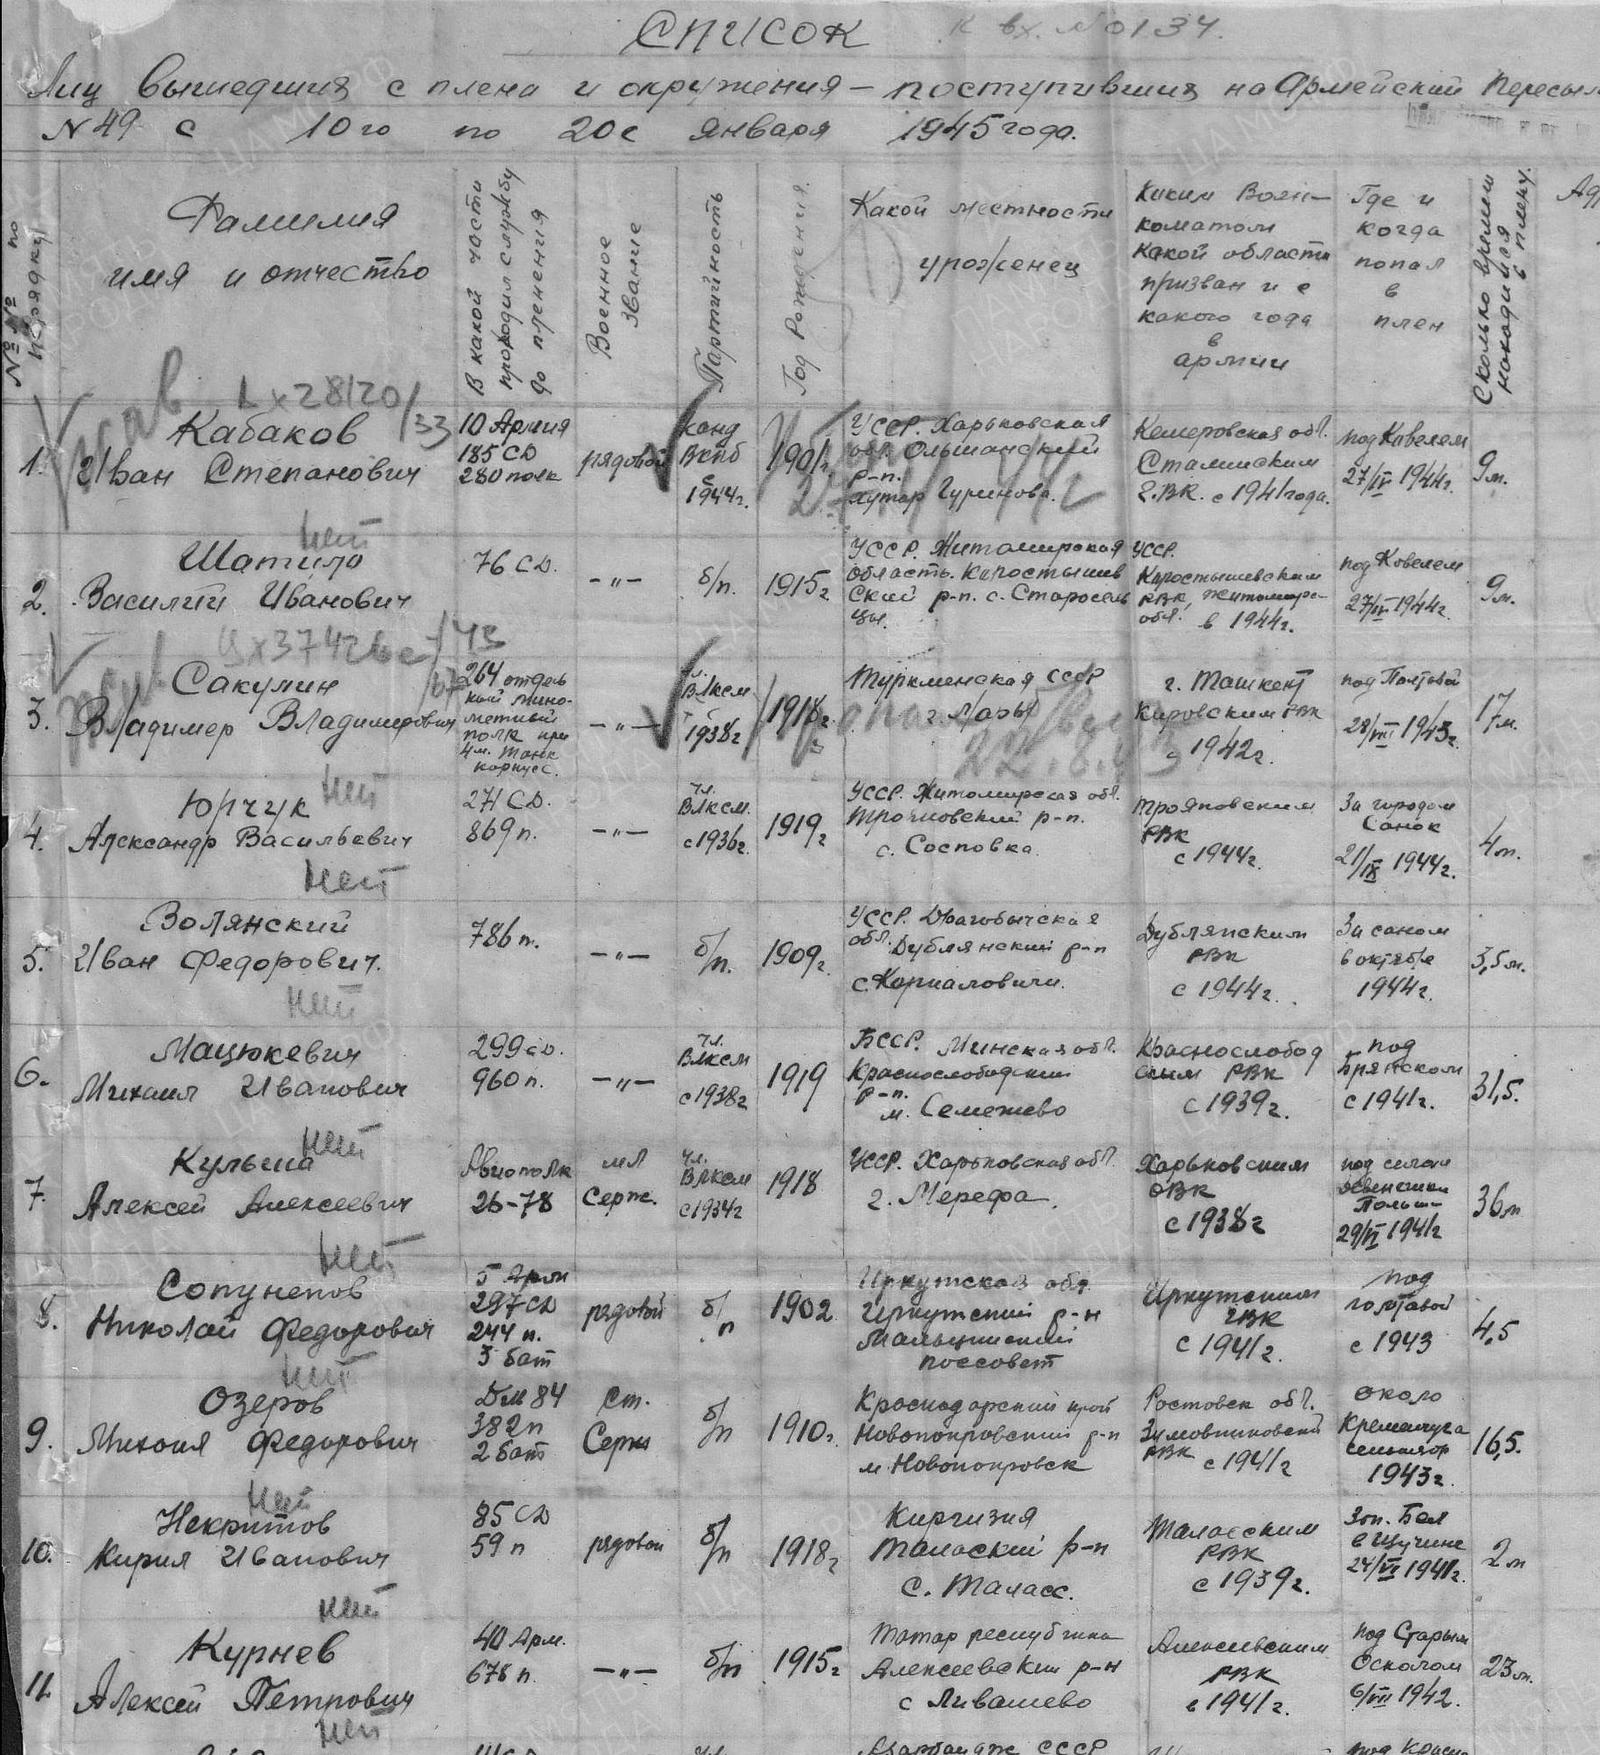 СПИСОК
к вх. №0134.
Лиц вышедших с плена и окружения – поступивших на Армейский Пересыл
N 49 с 10го по 20е января 1945 года.
№№ по порядку
Фамилия
имя и отчество
В какой части
проходил службу
до пленения
Военное
звание
Партийность
Год Рождения.
Какой местности
уроженец
Каким Воен-
коматом
какой области
призван и с
какого года
в
армии
Где и
когда
попал
в
плен
Сколько времени
находился
в плену.
Ад
1.
Кабаков
Иван Степанович
10 Армия
185 СД
280 полк
рядовой
канд
ВКПб
с
1944г.
1901г
УССР. Харьковская
обл. Ольшанский
р-н.
хутор Гуринова.
Кемеровская обл.
Сталинским
Г.ВК. с 1941 года.
под Ковелем
27/IV 1944г.
9м.
нет
2.
Шатило
Василий Иванович
76 СД.
–"–
б/п.
1915г
УССР. Житомирская
область. Коростышев
ский р-н. с. Старосель
цы.
УССР.
Коростышевским
РВК, Житомирс-
обл. в 1944г.
под Ковелем
27/IV 1944г.
9м.
3.
Сакулин
Владимер Владимирович
264 отдель
ный мино-
метный
полк при
4м. Танк
корпусе.
–"–
чл.
ВЛКСМ
с
1938г
1918г
Туркменская ССР
г. Мары
г. Ташкент
Кировским РВК
с 1942г.
под Полтавой
28/VIII 1943г.
17м.
22.8.43
нет
4.
Юрчук
Александр Васильевич
271 СД.
869 п.
–"–
чл.
ВЛКСМ.
с 1936г.
1919г
УССР. Житомирская обл.
Трояновский р-н.
с. Сосновка
Трояновским
РВК
с 1944г.
За городом
Санок
21/IX 1944г.
4м.
нет
5.
Волянский
Иван Федорович.
786 п.
–"–
б/п.
1909г.
УССР. Драгобычская
обл. Дублянский р-н
с.
Дублянским
РВК
с 1944г.
За саном
в октябре
1944г.
3,5м.
нет
6.
Мацюкевич
Михаил Иванович
299 сд.
960 п.
–"–
чл.
ВЛКСМ
с 1938г
1919
БССР. Минская обл.
Краснослободский
р-н.
м. Семежево
Краснослобод
ским РВК
с 1939г.
под
Брянском
с 1941г.
31,5.
нет
7.
Кульша
Алексей Алексеевич
Авиополк
26-78
мл
Серж.
чл.
ВЛКСМ
с 1934г
1918
УССР. Харьковская обл.
г. Мерефа.
Харьковским
ОВК
с 1938г
под селом
Польш
29/VI 1941г
36м
нет
8.
Сопунепов
Николай Федорович
5 Арм
297 СД
244 п.
3 бат
рядовой
б/п
1902
Иркутская обл
Иркутский р-н
поссовет
Иркутским
ГВК
с 1941г.
под
полтавой
с 1943
4,5
нет
9.
Озеров
Михоил Федорович
382 п
2 бат
Ст.
Серж
б/п
1910г.
Краснодарский край
Новопокровский р-н
м Новопокровск
Ростовск обл.
Зимовниковский
РВК с 1941г
около
Кременчуга
сентябр
1943г.
16,5.
нет
10.
Некритов
Кирил Иванович
85 СД
59 п
рядовой
б/п
1918г
Киргизия
Талаский р-н
С. Таласс.
Таласским
РВК
с 1939г.
Зап. Бел
в Щучине
24/VI 1941г.
2м
нет
11.
Курнев
Алексей Петрович
40 Арм.
678 п.
–"–
б/п
1915г
Татар республика
Алексеевский р-н
с Ливашево
Алексеевским
РВК
с 1941г.
под Старым
Осколом
6/VII 1942.
23м.
нет
Азарбайдж СССР
под